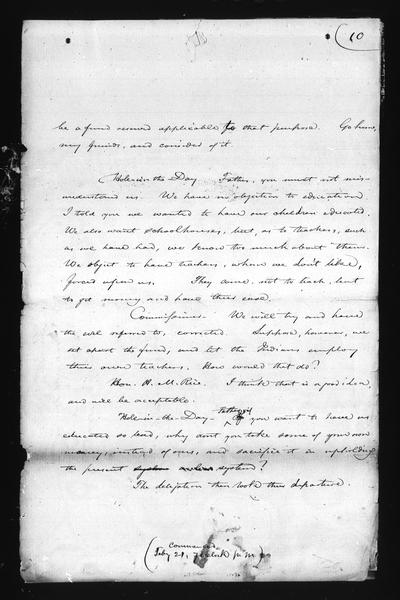 10
be a fund reserved applicable to that purpose. Go home,
my friends, and consider of it.
Hole-in-the Day. Father, you must not mis-
understand us. We have no objection to education.
I told you we wanted to have our children educated.
We also want schoolhouses, but, as to teachers, such
as we have had, we know too much about them.
We object to have teachers, whom we don't like,
forced upon us. They come, not to teach, but
to get money and have their ease.
Commissioner. We will try and have
the evil referred to, corrected. Suppose, however, we
set apart the fund, and let the Indians employ
their own teachers. How would that do?
Hon. H. M. Rice. I think that is a good idea,
and will be acceptable.
Hole-in-the-Day- Father, if you want to have us
educated so bad, why don't you take some of your own
money, instead of ours, and sacrifice it in upholding
the present system?
The delegation then took their departure.
(Commenced
Feby 21, 7 o'clock p.m.)